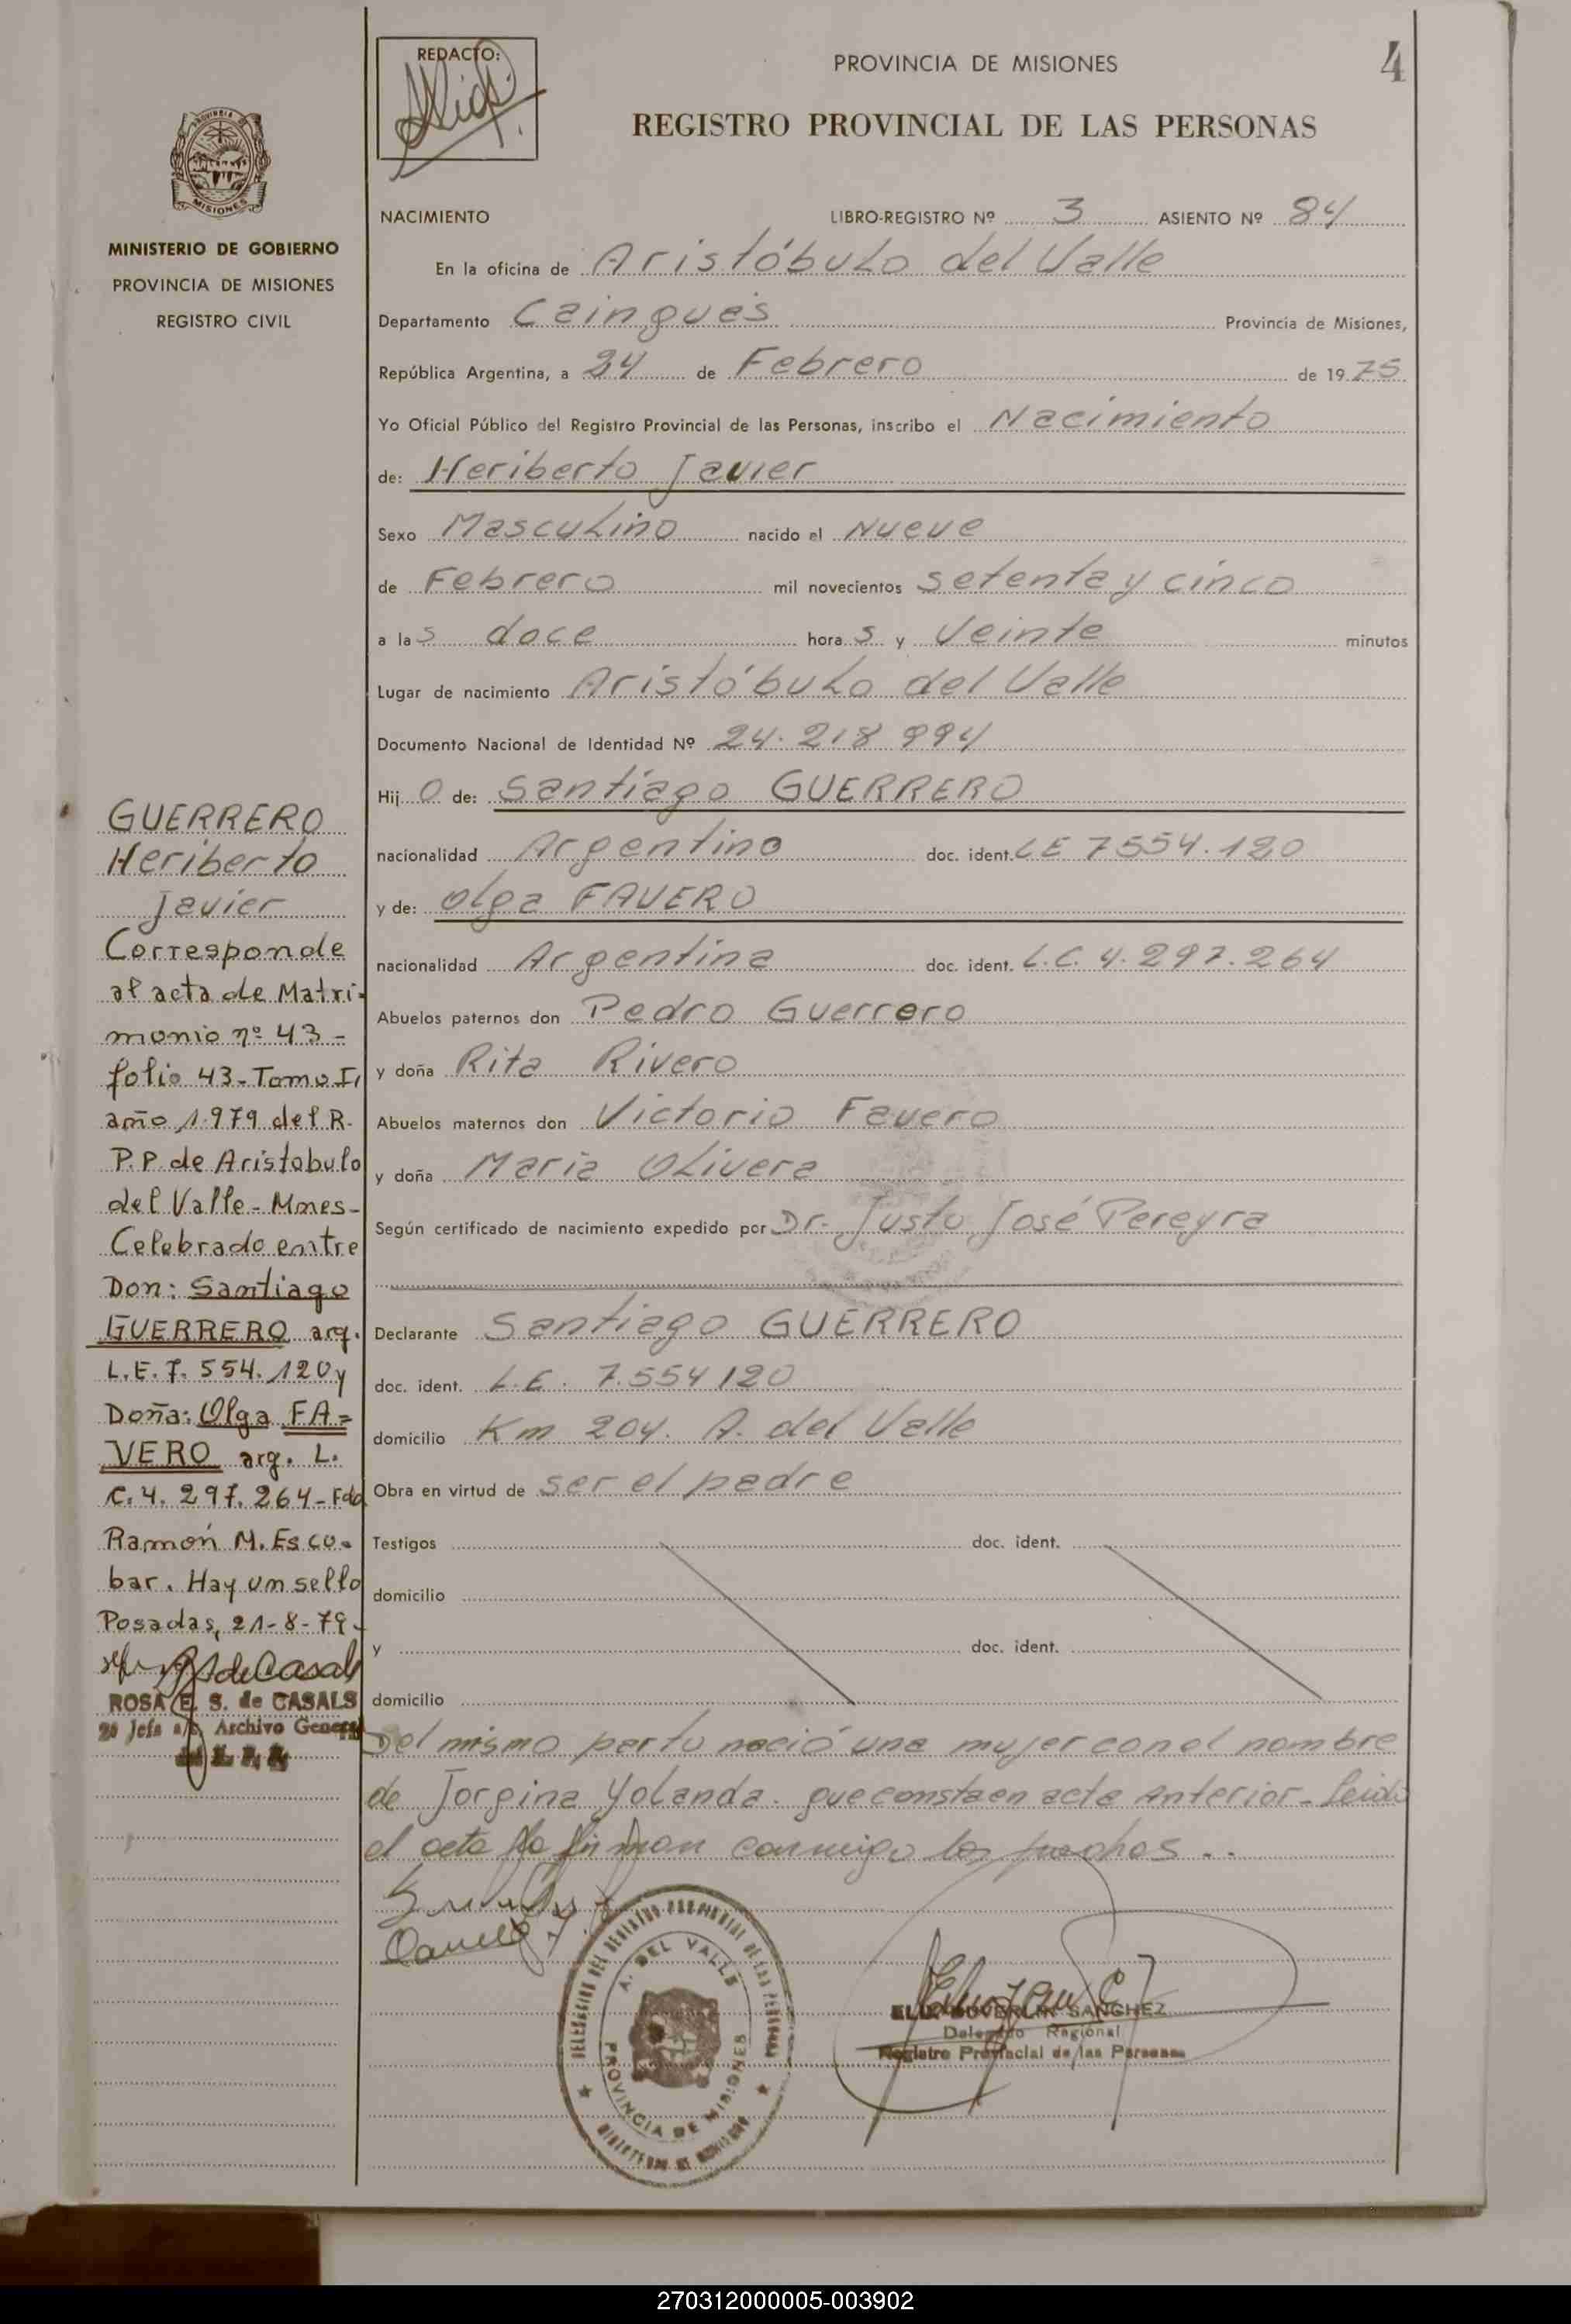 REDACTO:
PROVINCIA DE MISIONES
4
REGISTRO PROVINCIAL DE LAS PERSONAS
MISIONES
MINISTERIO DE GOBIERNO
PROVINCIA DE MISIONES
REGISTRO CIVIL
NACIMIENTO LIBRO-REGISTRO Nº 3 ASIENTO Nº 84
En la oficina de Aristóbulo del Valle
Departamento Caingués Provincia de Misiones,
República Argentina, a 24 de Febrero de 1975
Yo Oficial Público del Registro Provincial de las Personas, inscribo el Nacimiento
de: Heriberto Javier
Sexo Masculino nacido el Nueve
de Febrero mil novecientos setenta y cinco
a las doce horas y Veinte minutos
Lugar de nacimiento Aristóbulo del Valle
Documento Nacional de Identidad Nº 24.218 994
Hijo de: Santiago GUERRERO
nacionalidad Argentino doc. ident. LE 7554.120
y de: Olga FAVERO
nacionalidad Argentina doc. ident. L.C. 4.297.264
Abuelos paternos don Pedro Guerrero
y doña Rita Rivero
Abuelos maternos don Victorio Favero
y doña Maria Olivera
Según certificado de nacimiento expedido por Dr. Justo José Pereyra
Declarante Santiago GUERRERO
doc. ident. L.E. 7.554120
domicilio Km 204. A. del Valle
Obra en virtud de ser el padre
Testigos doc. ident.
domicilio
y doc. ident.
domicilio
Del mismo parto nació una mujer con el nombre
de Jorgina Yolanda. que consta en acta Anterior- Leida
el acta la firman conmigo los
GUERRERO
Heriberto
Javier
Corresponde
al acta de Matri-
monio nº 43-
folio 43-Tomo I,
año 1.979 del R.
P.P. de Aristobulo
del Valle- Mnes-
Celebrado entre
Don: Santiago
GUERRERO arg.
L.E. 7. 554. 120 y
Doña: Olga FA=
VERO arg. L.
C. 4. 297. 264- Fdo
Ramón M. Esco-
bar. Hay un sello
Posadas, 21-8-79-
ROSA E. S. de CASALS
2º Jefa a/c Archivo General
A. DEL VALLE
PROVINCIA DE MISIONES
SANCHEZ
Delegado Regional
Registro Provincial de las Personas
270312000005-003902